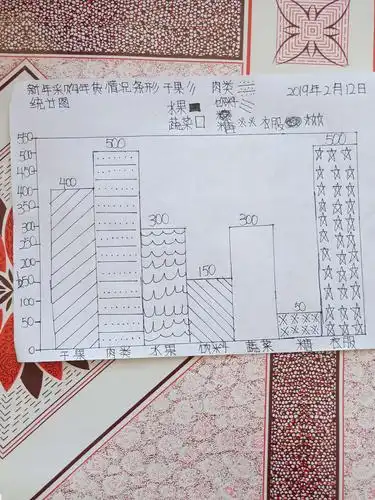 新年采购年货情况条形 干果 肉类 2019年2月12日
统计图 水果 饮料
蔬菜 糖 衣服
550
500 500 500
450
400 400
350
300 300 300
250
200
150 150
100
50 50
0
干果 肉类 水果 饮料 蔬菜 糖 衣服